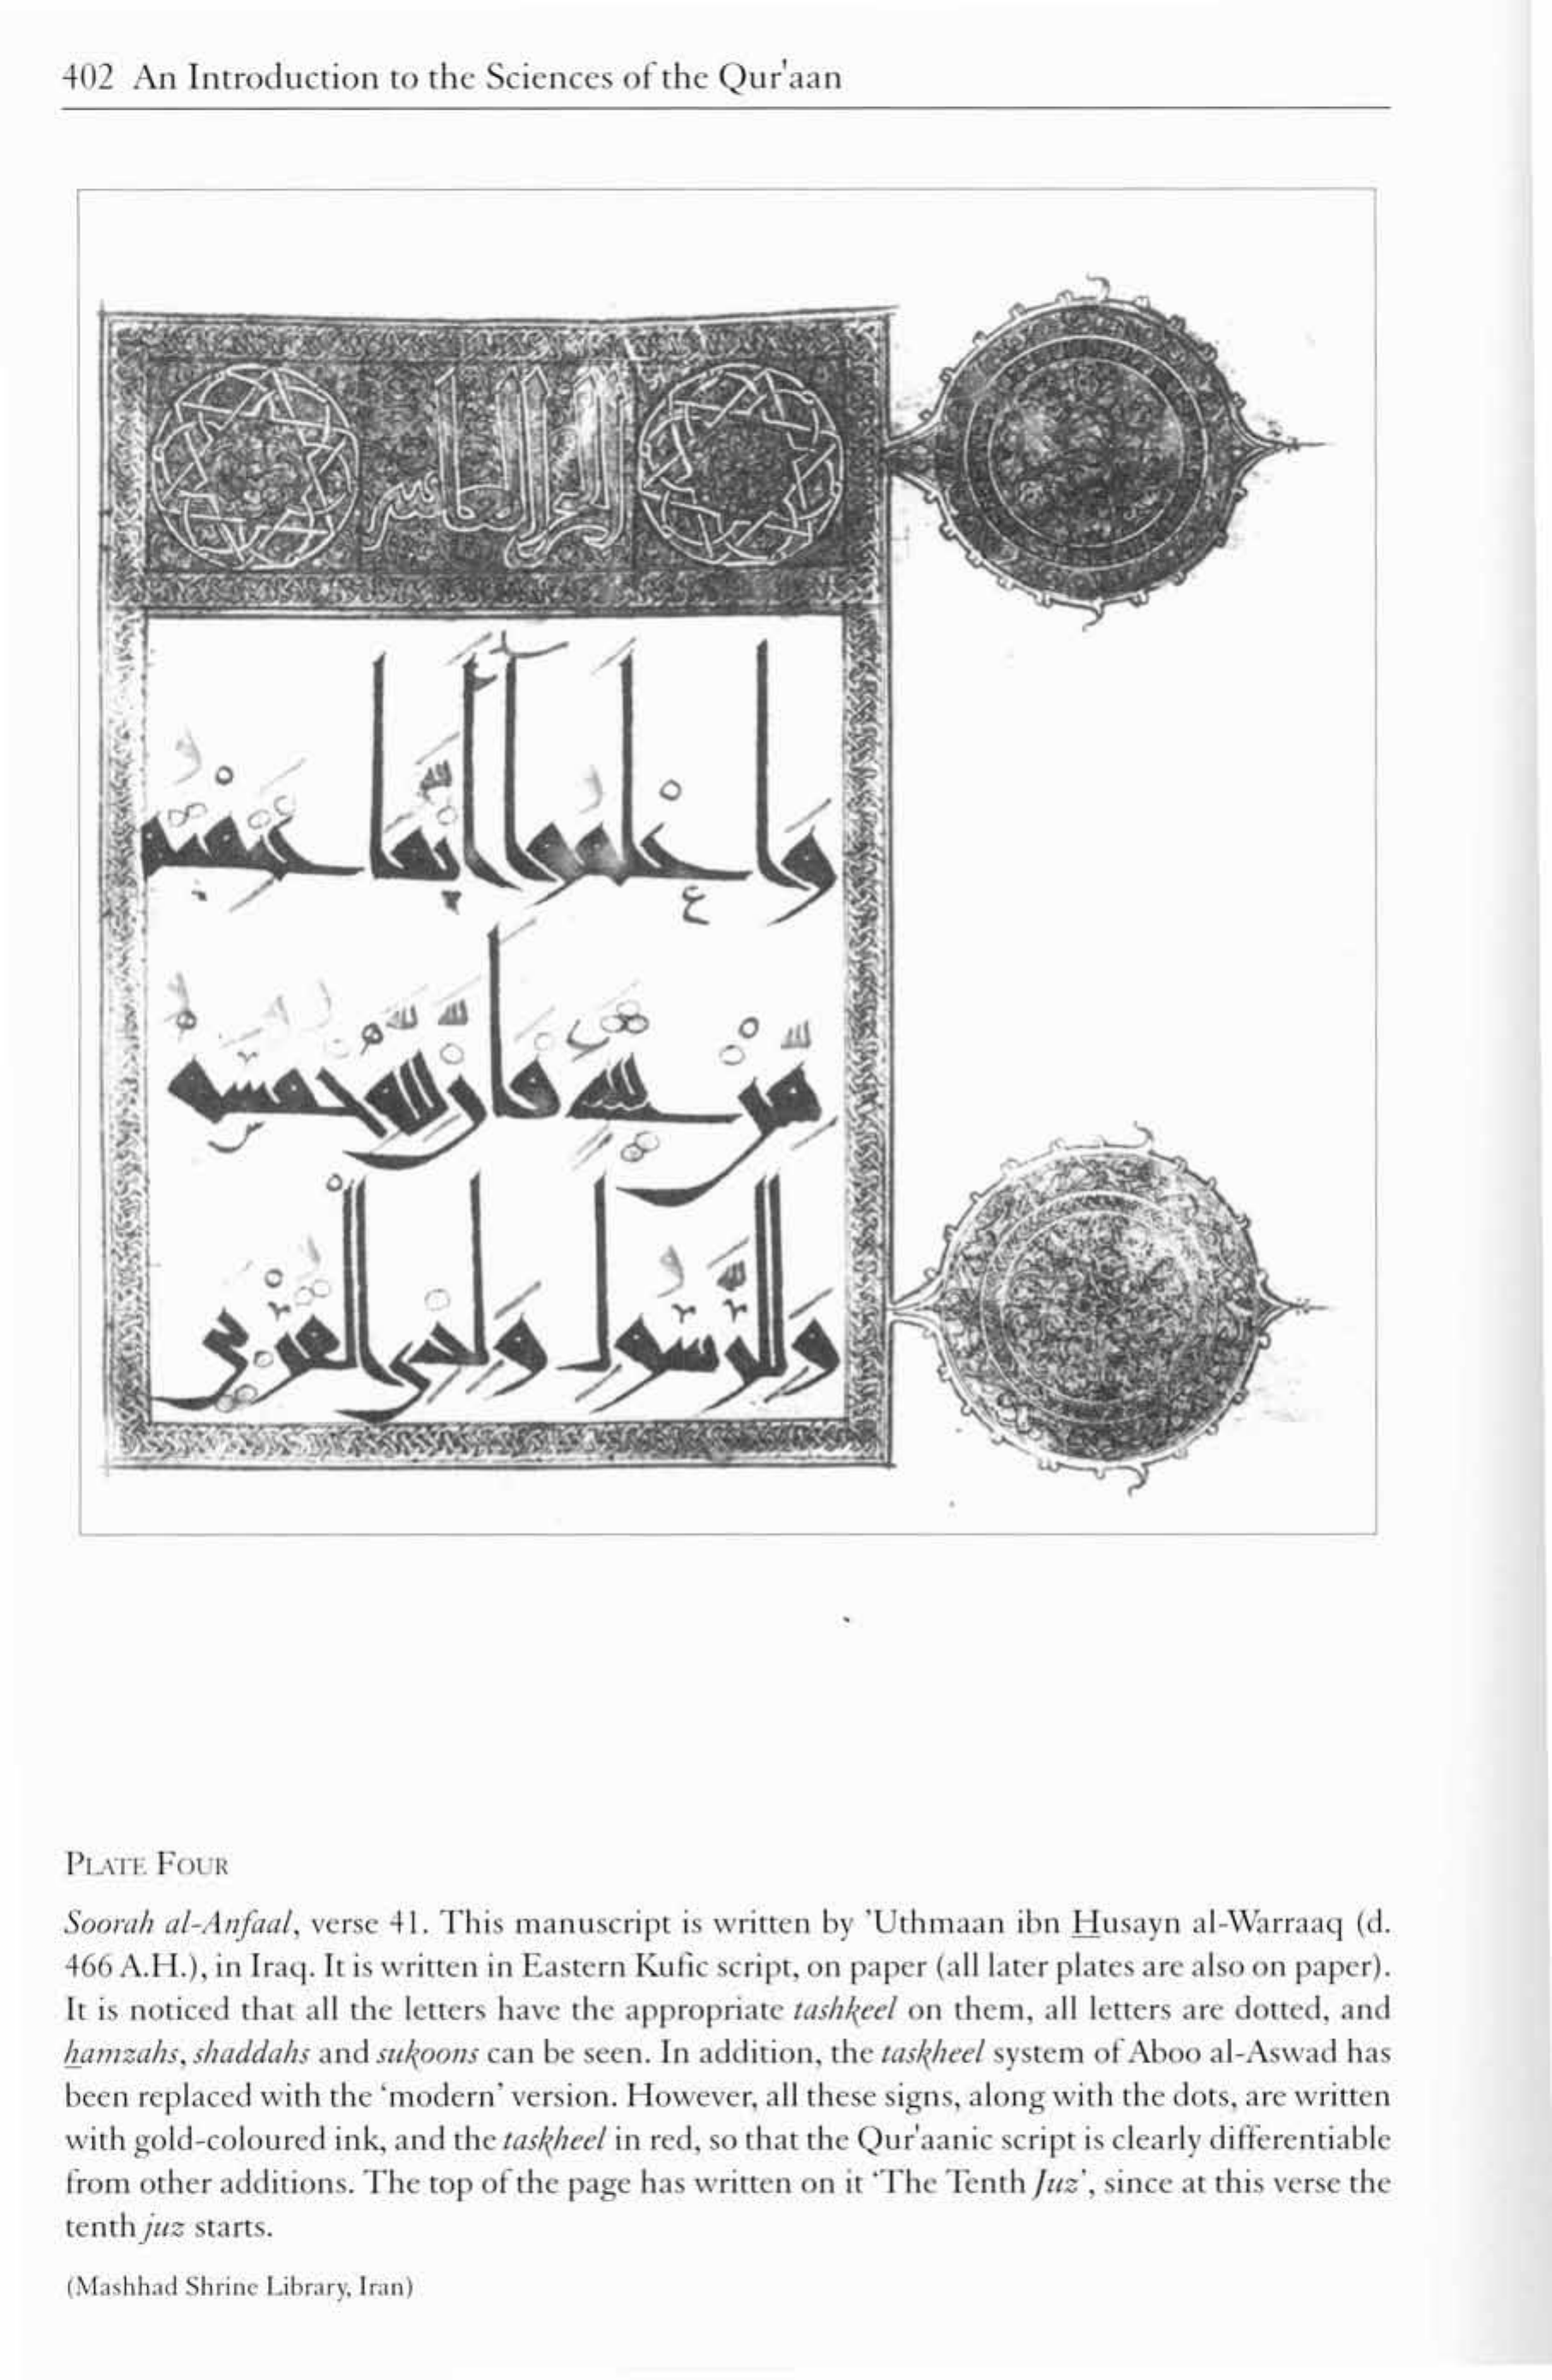 402 An Introduction to the Sciences of the Qur'aan
الجزء العاشر
وَاعْلَمُوا أَنَّمَا غَنِمْتُمْ
مِّنْ شَيْءٍ فَأَنَّ لِلَّهِ خُمُسَهُ
وَلِلرَّسُولِ وَلِذِي الْقُرْبَى
PLATE FOUR
Soorah al-Anfaal, verse 41. This manuscript is written by 'Uthmaan ibn Husayn al-Warraaq (d.
466 A.H.), in Iraq. It is written in Eastern Kufic script, on paper (all later plates are also on paper).
It is noticed that all the letters have the appropriate tashkeel on them, all letters are dotted, and
hamzahs, shaddahs and sukoons can be seen. In addition, the taskheel system of Aboo al-Aswad has
been replaced with the 'modern' version. However, all these signs, along with the dots, are written
with gold-coloured ink, and the taskheel in red, so that the Qur'aanic script is clearly differentiable
from other additions. The top of the page has written on it 'The Tenth Juz', since at this verse the
tenth juz starts.
(Mashhad Shrine Library, Iran)